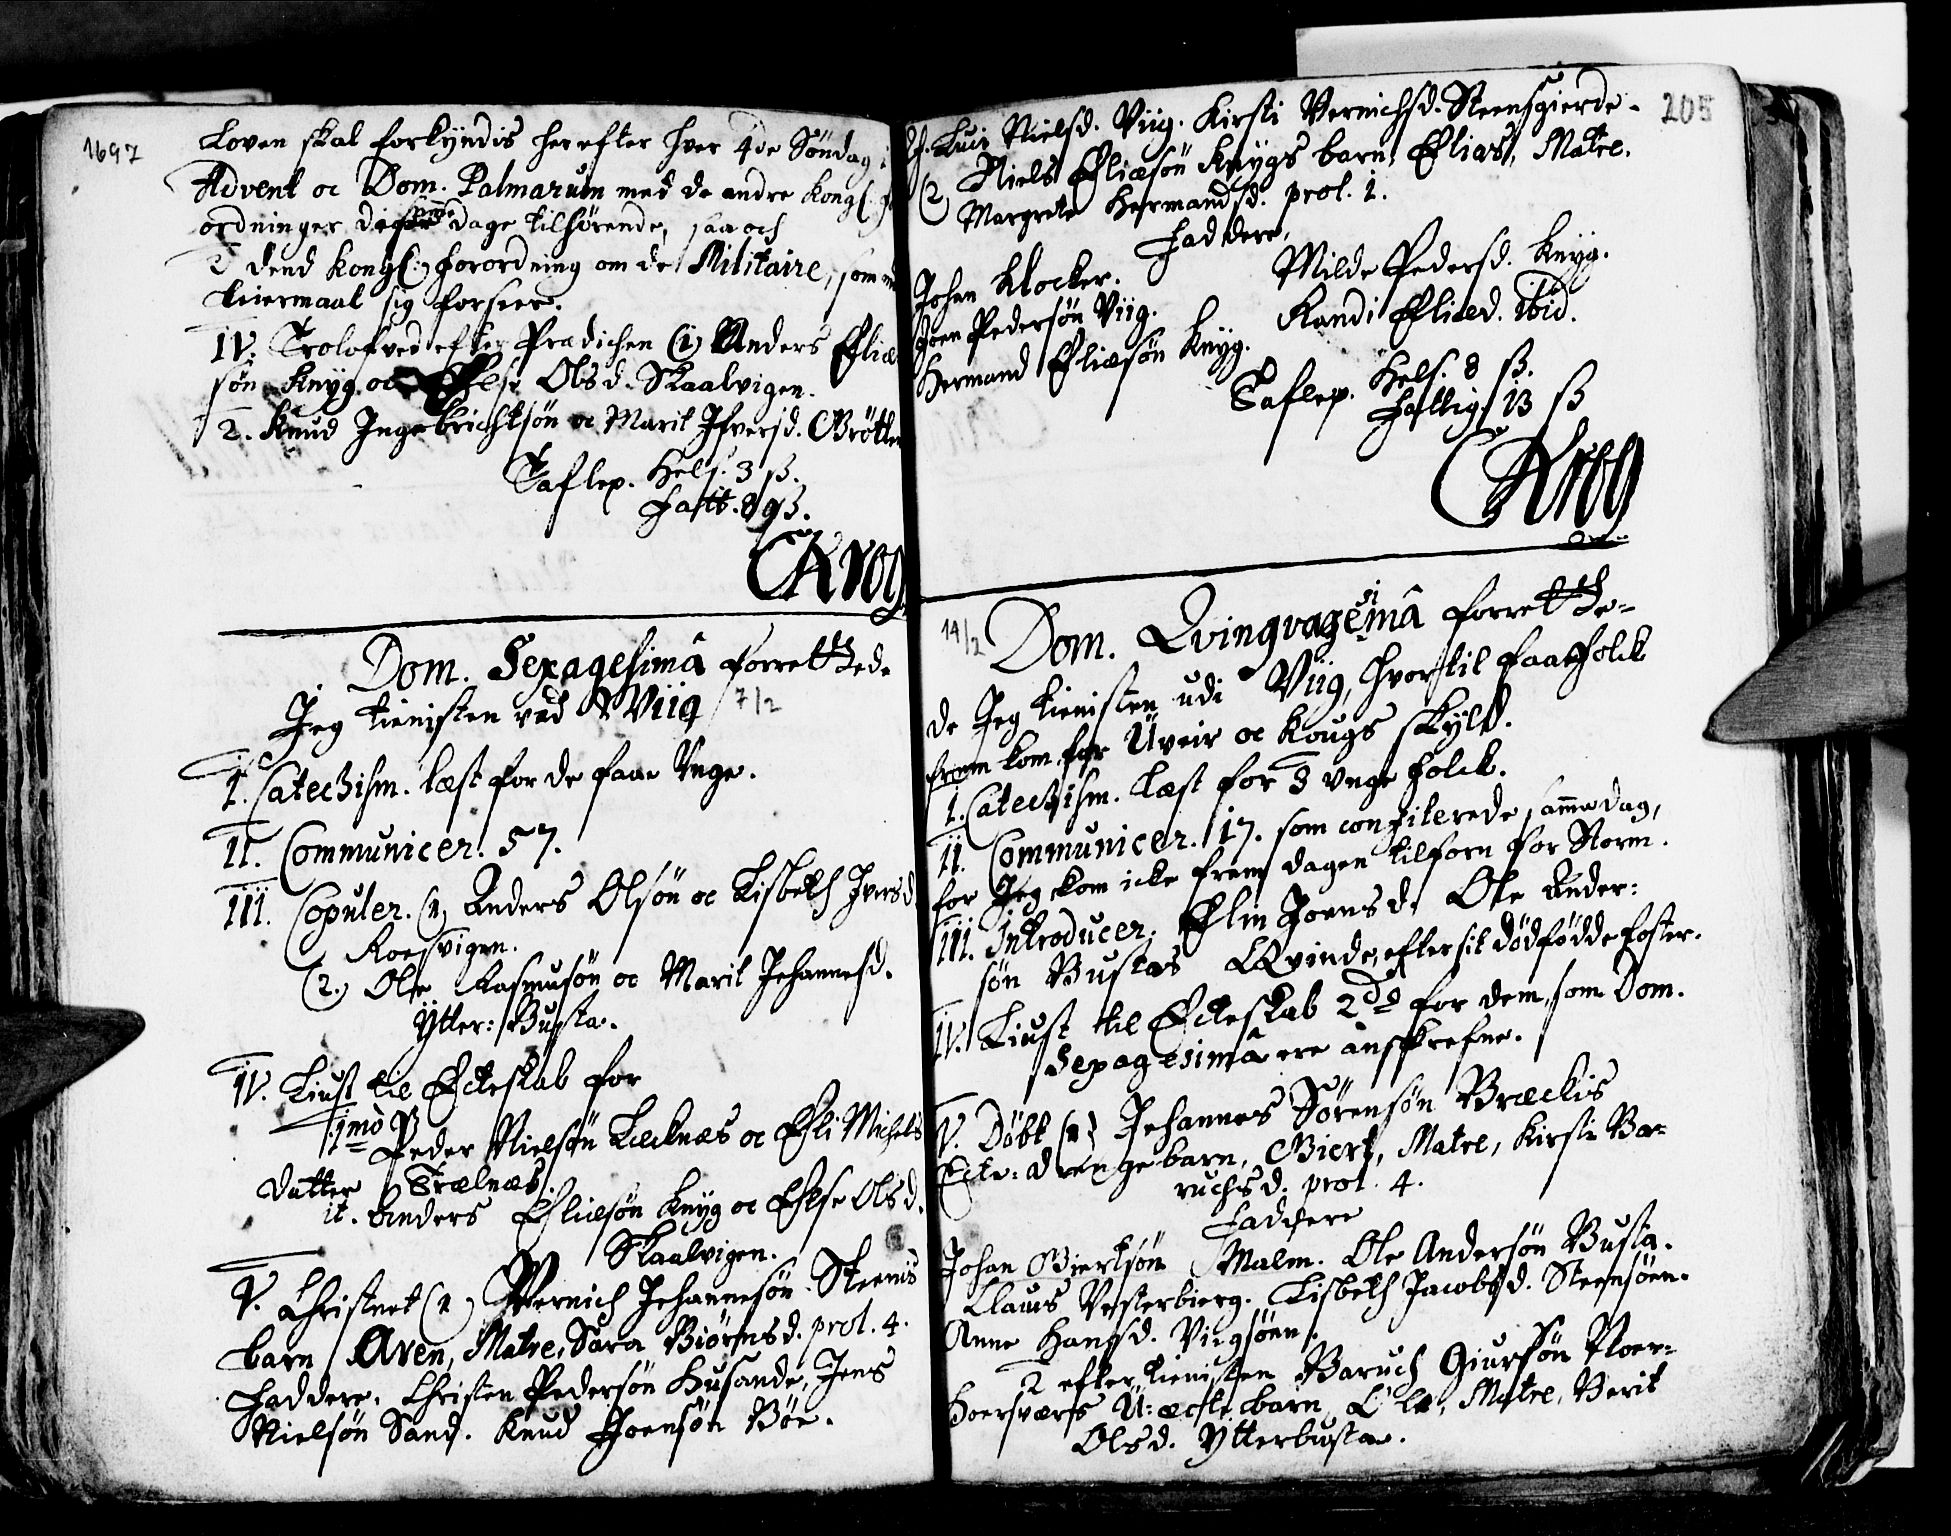 1697
Loven skal forkyndis her efter hver 4de Søndag i
Advent oc Dom. Palmarum med de andre Kongl:
ordninger disse dage tilhørende, saa och
2 dend Kongl: forordning om de Militaire, som
Leiermaal sig forseer.
IV. Trolofved efter Prædichen (1) Anders Eliæ
søn Knyg. oc Else Olsd. Skaalvigen.
2. Knud Ingebrichtsøn oc Marit Ifversd. Grøtte
Taflep. Hels. 3 ß.
Fatt. 8 ß.
CKrog
Dom. Sexagesimâ forrettede
Jeg tienisten ved Viig 7/2
I. Catechism. læst for de faae Unge.
II. Communicer. 57.
III. Copuler. (1) Anders Olsøn oc Lisbeth Iversd
Roesvigen.
(2.) Ole Rasmusøn oc Marit Johannesd.
Ytter: Busta.
IV. Liust til Ecteskab for
1mo
Peder Nielsøn Lecknæs oc Eli Michels
datter Trælnæs
it. Anders Eliæsøn Knyg oc Else Olsd.
Skaalvigen.
V. Christnet (1) Wernich Johannesøn Steenis
barn Aven, Matre, Sara Biørnsd. prol. 4.
Faddere. Christen Pedersøn Husande, Jens
Nielsøn Sand. Knud Joensøn Bøe.
205
Luci Nielsd. Viig. Kirsti Vernichsd. Steensgierde.
(2) Niels Eliæsøn Knygs barn, Elias, Matre.
Margrete Hermandsd. prol. 1.
Faddere,
Johan Klocker. Milde Pedersd. Knyg.
Joen Pedersøn Viig. Randi Eliæd. ibid.
Hermand Eliæsøn Knyg.
Taflep. Hels. 8 ß.
Fattig. 13 ß
CKrog
14/2 Dom. Qvinqvagesimâ forrette-
de Jeg tienisten udi Viig, hvortil faa folck
frem kom for Üveir oc Kougs skyld.
I. Catechism. læst for 3 unge folck.
II. Communicer. 17. som confiterede samme dag,
for Jeg kom icke frem dagen tilforn for Storm.
III. Introducer. Elin Joensd. Ole Ander:
søn Bustas Qvinde, efter sit dødfødde foster.
IV. Liust til Ecteskab 2de for dem, som Dom.
Sexagesimâ ere anskrefne.
V. Døbt (1) Johannes Sørensøn Breckis
Ecte: drenge barn, Giert, Matre, Kirsti Ba-
ruchsd. prol. 4.
Faddere
Johan Giertsøn Malm. Ole Andersøn Busta.
Claus Vesterbierg. Lisbeth Jacobsd. Steensøen.
Anne Hansd. Viigsøen.
2 efter tienisten Baruch Giursøn Noer-
Hoersværs U: ecte barn, Ole, Matre, Berit
Olsd. Ytterbusta.